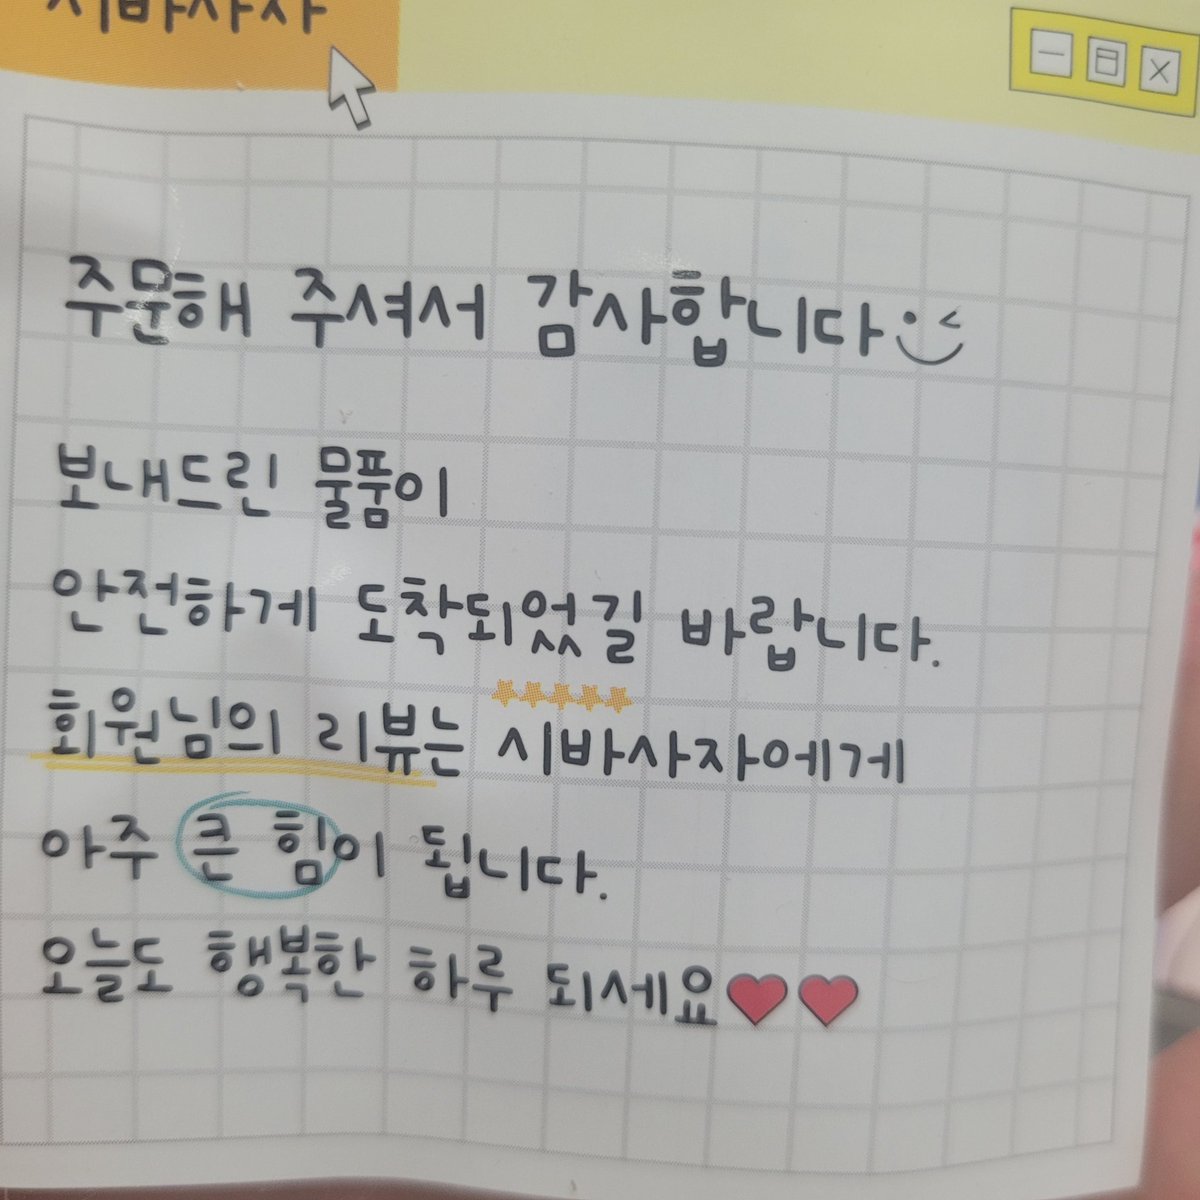 시바사자
주문해 주셔서 감사합니다
보내드린 물품이
안전하게 도착되었길 바랍니다.
회원님의 리뷰는 시바사자에게
아주 큰 힘이 됩니다.
오늘도 행복한 하루 되세요